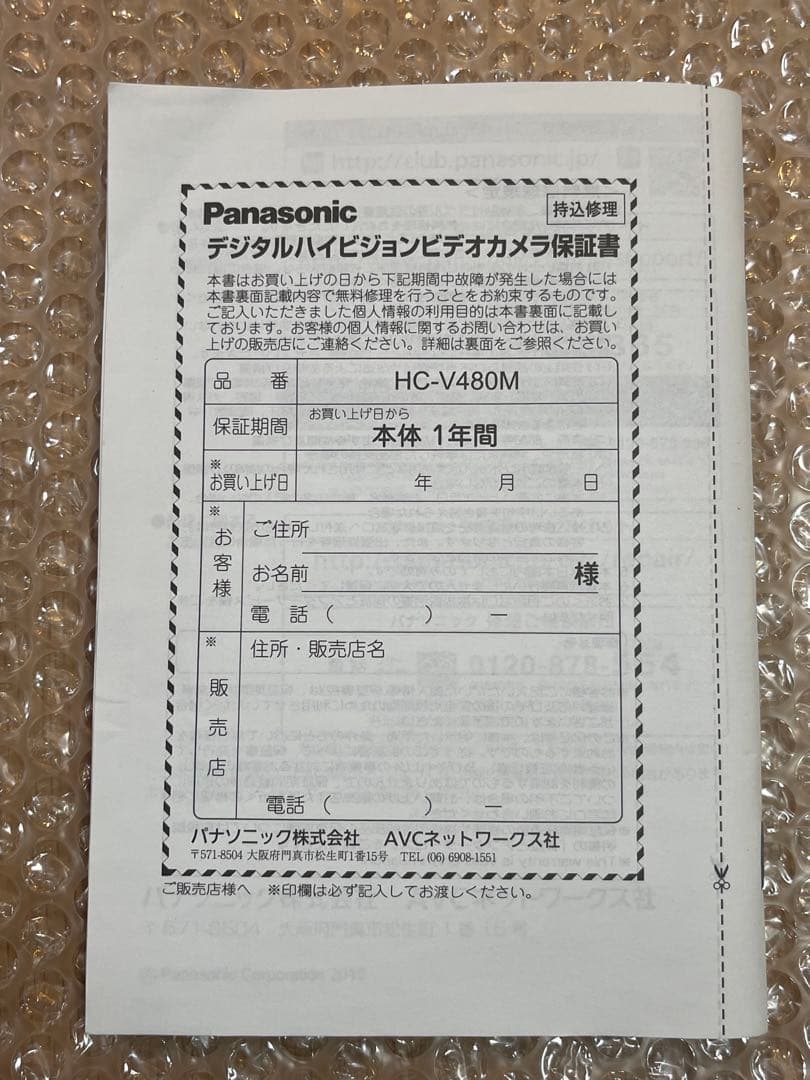 Panasonic
持込修理
デジタルハイビジョンビデオカメラ保証書
本書はお買い上げの日から下記期間中故障が発生した場合には
本書裏面記載内容で無料修理を行うことをお約束するものです。
ご記入いただきました個人情報の利用目的は本書裏面に記載し
ております。お客様の個人情報に関するお問い合わせは、お買い
上げの販売店にご連絡ください。詳細は裏面をご参照ください。
品 番 HC-V480M
保証期間 お買い上げ日から
本体 1年間
※
お買い上げ日 年 月 日
※
お客様
ご住所
お名前 様
電 話 ( ) ー
※
販売店
住所・販売店名
電話 ( ) ー
パナソニック株式会社 AVCネットワークス社
〒571-8504 大阪府門真市松生町1番15号 TEL (06) 6908-1551
ご販売店様へ ※印欄は必ず記入してお渡しください。